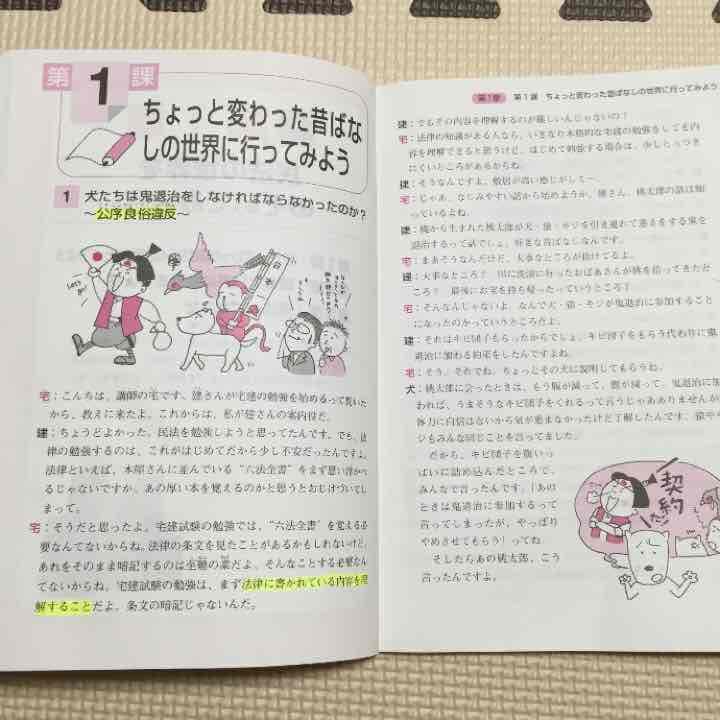 第1課
ちょっと変わった昔ばな
しの世界に行ってみよう
1 犬たちは鬼退治をしなければならなかったのか?
～公序良俗違反～
Let's go!
日本一
宅：こんちは、講師の宅です。建さんが宅建の勉強を始めるって聞いた
から、教えに来たよ。これからは、私が建さんの案内役だ。
建：ちょうどよかった。民法を勉強しようと思ってたんです。でも、法
律の勉強するのは、これがはじめてだから少し不安だったんですよ。
法律といえば、本屋さんに並んでいる"六法全書"をまず思い浮かべ
るじゃないですか。あの厚い本を覚えるのかと思うとおじけづいてし
まって。
宅：そうだと思ったよ。宅建試験の勉強では、"六法全書"を覚える必
要なんてないからね。法律の条文を見たことがあるかもしれないけど、
あれをそのまま暗記するのは至難の業だよ。そんなことする必要なん
てないからね。宅建試験の勉強は、まず法律に書かれている内容を理
解することだよ、条文の暗記じゃないんだ。
第1章 第1課 ちょっと変わった昔ばなしの世界に行ってみよう
建：でもその内容を理解するのが難しいんじゃないの?
宅：法律の知識がある人なら、いきなり本格的な宅建の勉強をしても内
容を理解できると思うけど、はじめて勉強する場合は、少しとっつき
にくいところがあるからね。
建：そうなんですよ、敷居が高い感じがして…。
宅：じゃあ、なじみやすい話から始めようか。建さん、桃太郎の話は知
っているよね。
建：桃から生まれた桃太郎が犬・猿・キジを引き連れて悪さをする鬼を
退治するって話でしょ。好きな昔ばなしなんです。
宅：まあそうなんだけど、大事なところが抜けてるよ。
建：大事なところ? 川に洗濯に行ったおばあさんが桃を拾ってきたとこ
ろ? 最後にお宝を持ち帰ったってところ?
宅：そんなんじゃないよ。なんで犬・猿・キジが鬼退治に参加すること
になったのかっていうところだよ。
建：それはキビ団子もらったからでしょ。キビ団子をもらう代わりに鬼
退治に加わる約束をしたんですよね。
宅：そう、それでね。ちょっとその犬に説明してもらうね。
犬：桃太郎に会ったときは、もう腹が減って、腹が減って。鬼退治に加
われば、うまそうなキビ団子をくれるって言うじゃありませんか。
体力に自信はないから気が進まなかったけど了解したんです。猿やキ
ジもみんな同じことを言ってました。
だから、キビ団子を腹いっ
ぱいに詰め込んだところで、
みんなで言ったんです。「あの
ときは鬼退治に参加するって
言ってしまったが、やっぱり
やめさせてもらう!」ってね。
そしたらあの桃太郎、こう
言ったんですよ。
契約だ!